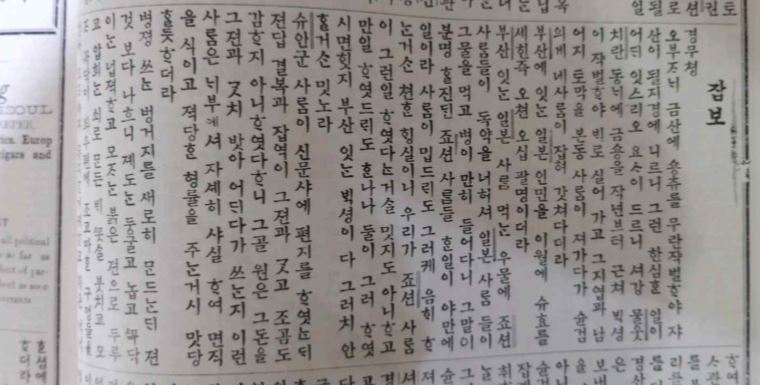 잡보
경무쳥
오부ᄌᆞᄂᆡ 금산에 숑츄를 무란작벌ᄒᆞ야 쟈
산이 될지경에 니르니 그런 한심ᄒᆞᆫ 일이
어ᄃᆡ 잇스리오 요ᄉᆞ이 드르니 셔강 물웃
치란 동ᄂᆡ에 금숑을 작년부터 근쳐 ᄇᆡᆨ셩
이 쟉벌ᄒᆞ야 ᄇᆡ로 실어 가고 그지엽과 남
어지 토막을 분둥 사ᄅᆞᆷ이 져가다가 슌검
의게 네사ᄅᆞᆷ이 잡혀 갓쳐다더라
부산에 잇ᄂᆞᆫ 일본 인민을 이월에 슈효를
셰힌즉 오쳔 오십 팔명이더라
부산 잇ᄂᆞᆫ 일본 사ᄅᆞᆷ 먹ᄂᆞᆫ 우물에 죠션
사ᄅᆞᆷ들이 독약을 너허셔 일본 사ᄅᆞᆷ들이
그물을 먹고 병이 만히 들어다니 그말이
분명 ᄒᆞᆯ진ᄃᆡᆫ 죠션 사ᄅᆞᆷ들 ᄒᆞᆫ일이 야만에
일이라 사ᄅᆞᆷ이 밉드ᄅᆡ도 그러케 음ᄒᆡ ᄒᆞ
ᄂᆞᆫ거슨 쳔ᄒᆞᆫ ᄒᆡᆼ실이니 우리가 죠션 사ᄅᆞᆷ
이 그런일 ᄒᆞ엿다ᄂᆞᆫ거슬 밋지도 아니ᄒᆞ고
만일 ᄒᆞ엿드ᄅᆡ도 ᄒᆞ나나 둘이 그러 ᄒᆞ엿
시면힛지 부산 잇ᄂᆞᆫ ᄇᆡᆨ셩이 다 그러치 안
ᄒᆞᆯ거슨 밋노라
슈안군 사ᄅᆞᆷ이 신문샤에 편지를 ᄒᆞ엿ᄂᆞᆫᄃᆡ
젼답 결복과 잡역이 그젼과 ᄀᆞᆺ고 조곰도
감ᄒᆞ지 아니ᄒᆞ엿다ᄒᆞ니 그골 원은 그돈을
그젼과 ᄀᆞᆺ치 밧아 어ᄃᆡ다가 쓰ᄂᆞᆫ지 이런
사ᄅᆞᆷ은 ᄂᆡ부에셔 자셰히 샤실 ᄒᆞ여 면직
을 식이고 젹당ᄒᆞᆫ 형률을 주ᄂᆞᆫ거시 맛당
ᄒᆞᆯ듯ᄒᆞ더라
병졍 쓰ᄂᆞᆫ 벙거지를 새로히 문드ᄂᆞᆫᄃᆡ 젼
것 보다 나흐니 졔도ᄂᆞᆫ 둥굴고 놉고
이ᄂᆞᆫ 넙젹ᄒᆞ고 모ᄌᆞᄂᆞᆫ 붉은 젼으로 두루
고 압희ᄂᆞᆫ 쇠로 문든 부치고 모
SEOUL
Europ
cigars and
all political